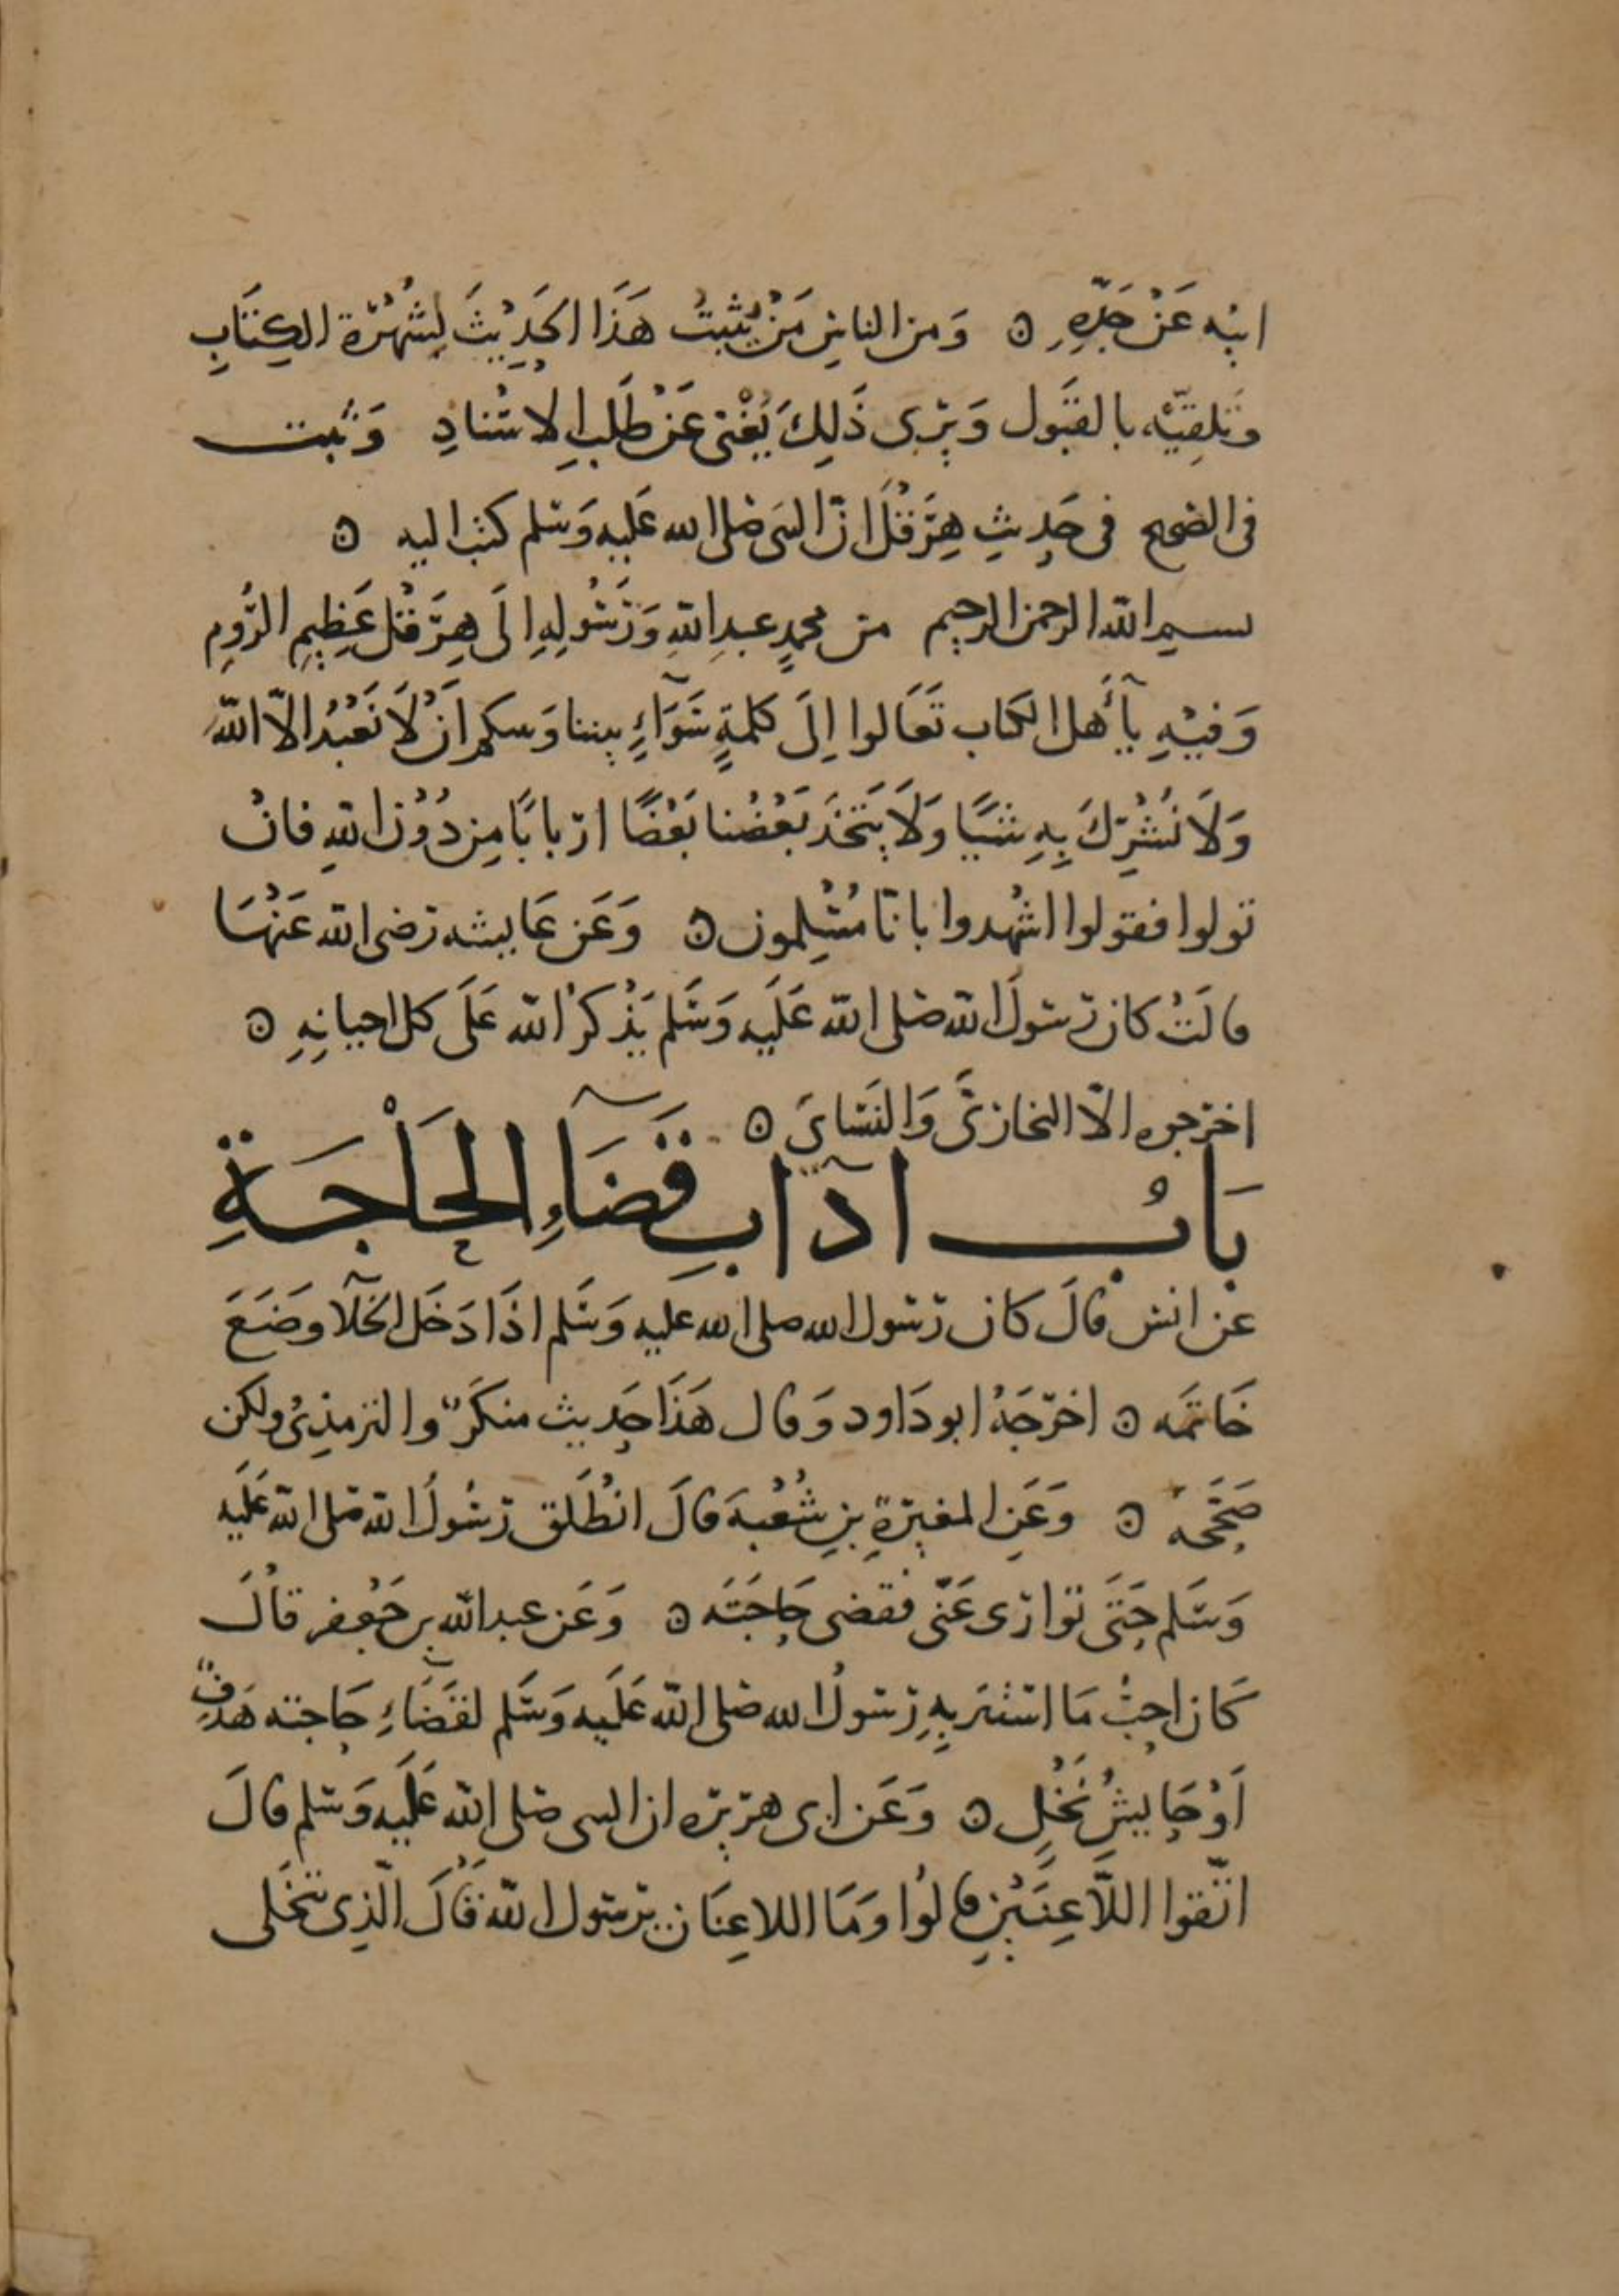 ابيه عَنْ جَدِّهِ ۞ وَمن الناسِ مَنْ يُثبتُ هَذَا الحَدِيْثَ لِشُهْرَة الكِتَابِ
وَتَلقِيّه بالقَبُول وَيَرى ذَلِكَ يُغْنى عَنْ طَلَبِ الاسْنادِ وَثبت
فى الصحيح فى حَدِيثِ هِرَقْلَ انّ النبىَ صَلى الله عَليه وَسَلم كتب اليه ۞
بسم الله الرحمن الرحيم من محمدٍ عبدِ اللهِ وَرَسُولِهِ الَى هِرَقْل عَظِيمِ الرُّومِ
وَفيْهِ يآأَهل الكتاب تَعَالوا اِلَى كلمةٍ سَوَآءٍ بيننا وَبينكم اَنْ لَا نَعْبُد الاّ اللهَ
وَلَا نُشْرِكَ بِهِ شَيًا وَلَا يَتَّخذَ بَعْضُنا بَعْضًا ارْبابًا مِن دُوْن اللهِ فانْ
تولوا فقولوا اشْهدوا بانّا مُسْلِمون ۞ وَعَن عَايشه رَضى الله عَنْهَا
قالَتْ كان رَسولُ الله صَلى الله عَلَيه وَسَلم يَذْكرُ الله عَلَى كل احيانِهِ ۞
اخرَجوه الّا البخارىَّ وَالنَسَاىَ ۞
بَابُ آدَابِ قَضَآءِ الحَاْجَةِ
عن انس قالَ كان رَسُول الله صلى الله عليه وَسَلم اذَا دَخَل الخَلَآ وضَعَ
خَاتمَه ۞ اخرَجَهُ ابودَاود وَقال هَذَا حَديث منكَرٌ والترمذِىُ ولكن
صَحّحَه ۞ وَعَنِ المغيرَةِ بنِ شُعْبَهَ قالَ انْطَلَق رَسُولُ الله صَلى الله عَلَيه
وَسَلم حَتَى تَوارَى عَنّى فقضى حَاجَتَه ۞ وَعَن عبد الله بن جَعْفر قالَ
كَان احبُّ مَا استتر بِهِ رَسُولُ الله صَلى الله عَلَيه وَسَلم لقَضَآءِ حَاجته هَدفٌ
اَوْ حَايِشُ نَخْلٍ ۞ وَعَن ابى هرَيرَه ان النبى صَلى الله عَلَيه وَسَلم قالَ
اتّقوا اللَّاعِنَيْنِ قالوُا وَمَا اللاعِنَان يرَسُول الله قالَ الّذِى يتخَلى